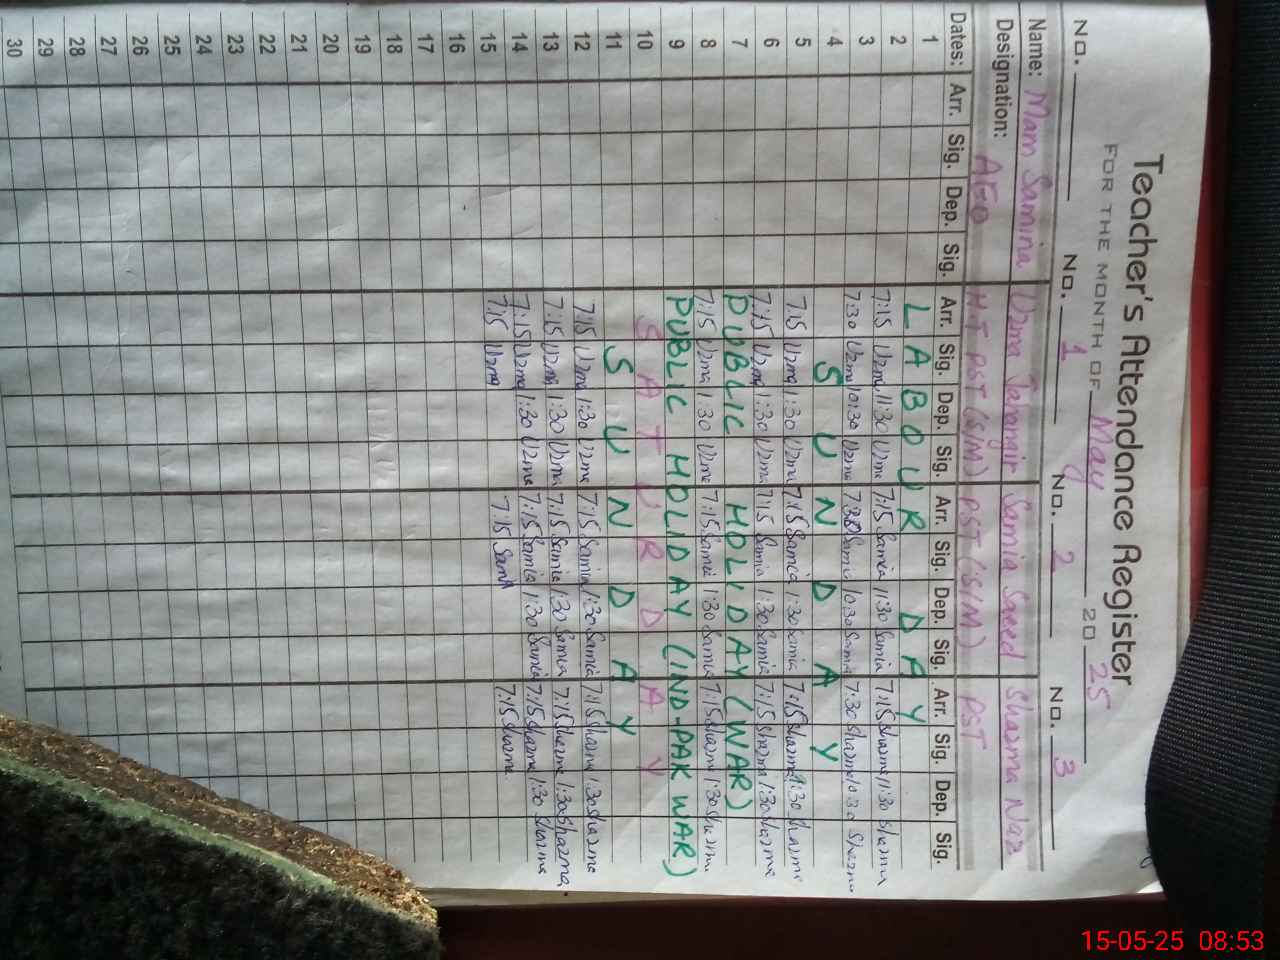 Teacher's Attendance Register
FOR THE MONTH OF May 2025
No. No. 1 No. 2 No. 3
Name: Mam Samina Uzma Jahangir Samia Saeed Shazma Naz
Designation: AEO H.T PST (S/M) PST (S/M) PST
Dates: Arr. Sig. Dep. Sig. Arr. Sig. Dep. Sig. Arr. Sig. Dep. Sig. Arr. Sig. Dep. Sig.
1 LABOUR DAY
2 7:15 Uzma 11:30 Uzma 7:15 Samia 11:30 Samia 7:15 Shazma 11:30 Shazma
3 7:30 Uzma 10:30 Uzma 7:30 Samia 10:30 Samia 7:30 Shazma 10:30 Shazma
4 SUNDAY
5 7:15 Uzma 1:30 Uzma 7:15 Samia 1:30 Samia 7:15 Shazma 1:30 Shazma
6 7:15 Uzma 1:30 Uzma 7:15 Samia 1:30 Samia 7:15 Shazma 1:30 Shazma
7 PUBLIC HOLIDAY (WAR)
8 7:15 Uzma 1:30 Uzma 7:15 Samia 1:30 Samia 7:15 Shazma 1:30 Shazma
9 PUBLIC HOLIDAY (IND-PAK WAR)
10 SATURDAY
11 SUNDAY
12 7:15 Uzma 1:30 Uzma 7:15 Samia 1:30 Samia 7:15 Shazma 1:30 Shazma
13 7:15 Uzma 1:30 Uzma 7:15 Samia 1:30 Samia 7:15 Shazma 1:30 Shazma
14 7:15 Uzma 1:30 Uzma 7:15 Samia 1:30 Samia 7:15 Shazma 1:30 Shazma
15 7:15 Uzma 7:15 Samia 7:15 Shazma
16
17
18
19
20
21
22
23
24
25
26
27
28
29
30
15-05-25 08:53